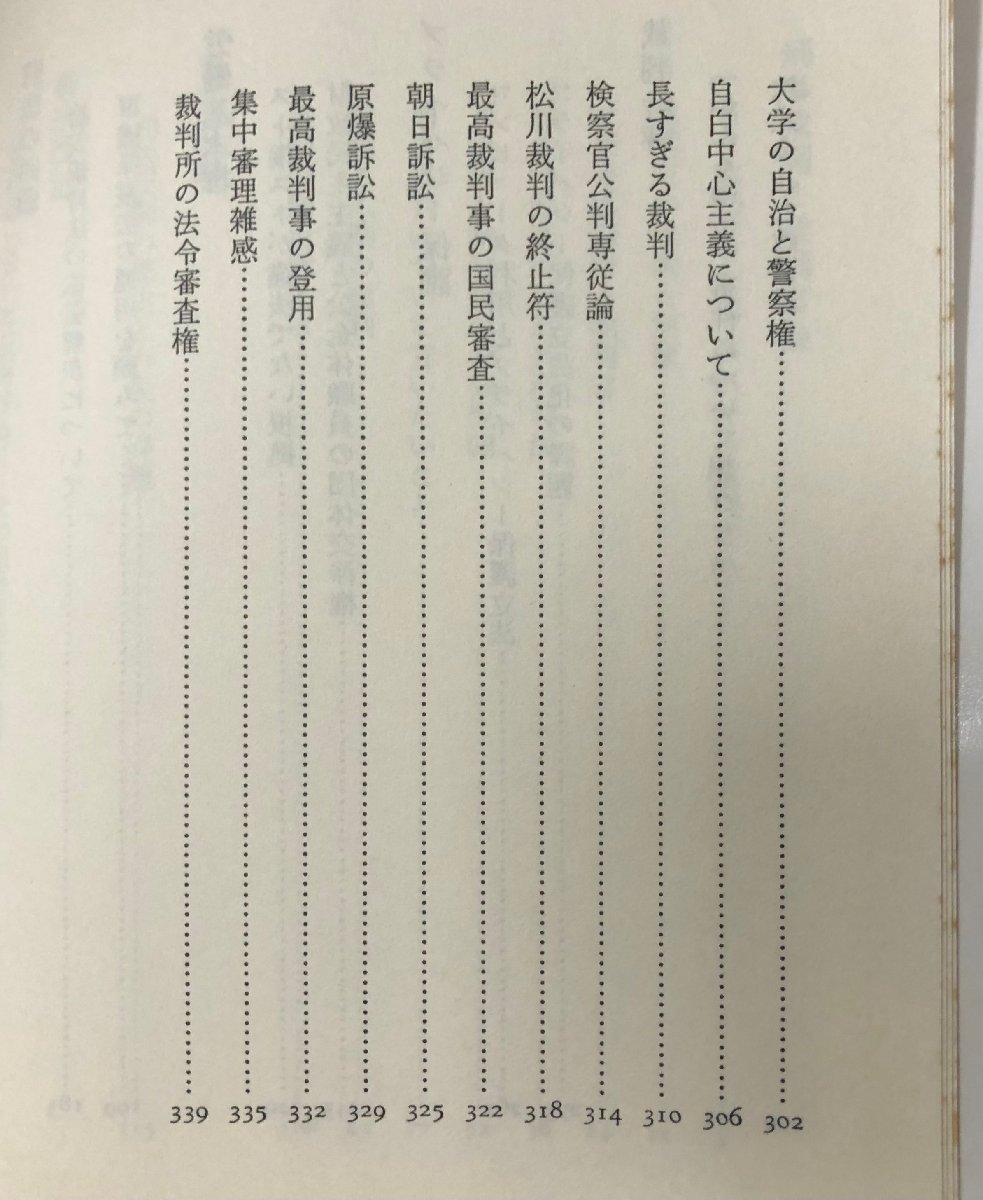 大学の自治と警察権……302
自白中心主義について……306
長すぎる裁判……310
検察官公判専従論……314
松川裁判の終止符……318
最高裁判事の国民審査……322
朝日訴訟……325
原爆訴訟……329
最高裁判事の登用……332
集中審理雑感……335
裁判所の法令審査権……339